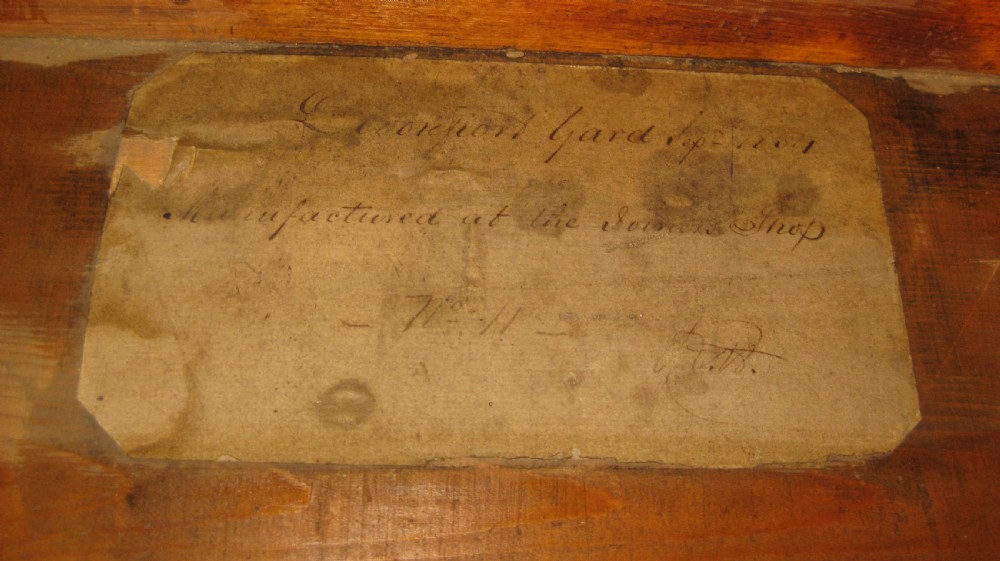 Devonport Yard
Manufactured at the Joiners Shop
- No. 11 -